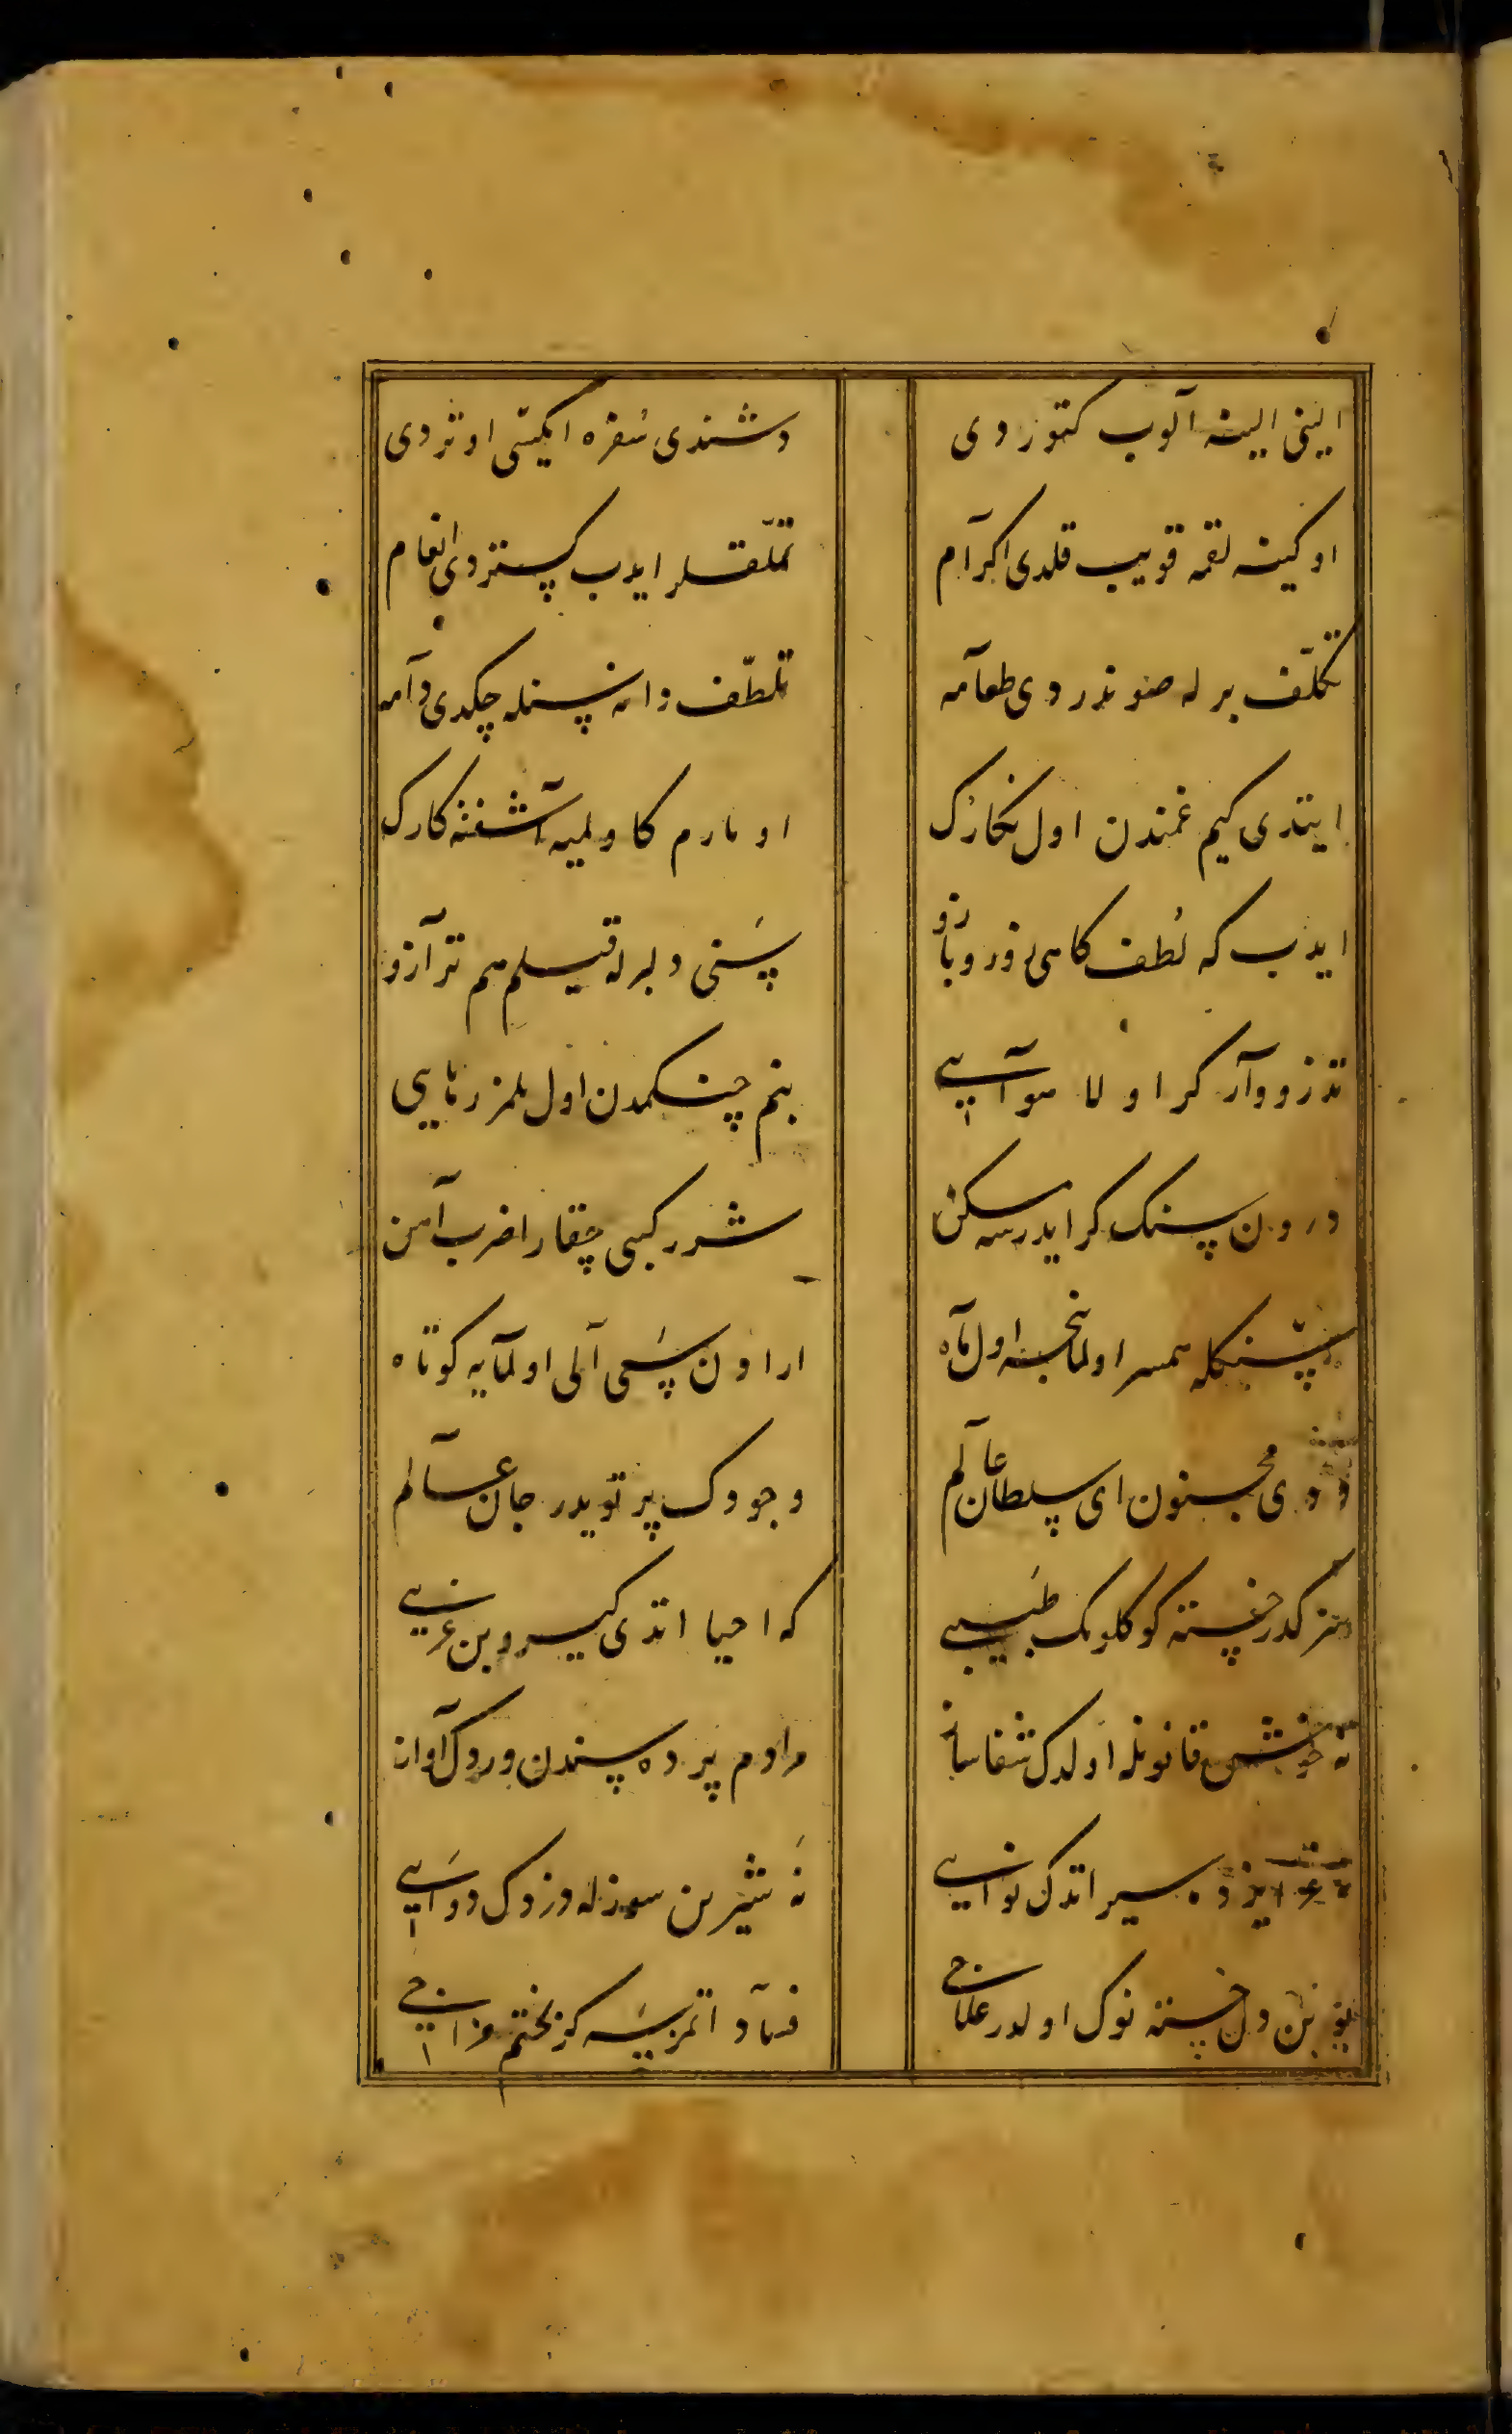 الینی الینه آلوب کتوردی
دشندی سفره ایکیسی اوتردی
اوکینه لقمه قویب قلدی اکرام
تملّقلر ایدب کستردی انعام
تکلّف برله صوندردی طعامه
تلطّف دانه سنله چکدی دامه
ایتدی کیم غمندن اول نکارک
اوبارم کا ولمیه آشفته کارک
ایدب که لطف کاهی زور وبازو
سنی دلبرله قیلم هم ترازو
بنم جنکمدن اول بلمز رهایی
درون سنک کر ایدرسه مسکن
شرر کبی چقارا ضرب آهن
سنکله همسر اولمانجه اول ماه
اراودن سعی الی اولمایه کوتاه
دیدی مجنون ای سلطان عالم
وجودک پرتویدر جان عالم
خسته کوکلومک طبیبی
که احیا اتدی کیسو بن غریبی
نه خوش قانونله اولدک شفاساز
مرادم پرده سندن وردک آواز
سیر اتدک نوایی
نه شیرین سوزله وردک دوایی
بو بن دل خسته نوک اولدر علاجی
فساد اتمزسه کر بختم مزاجی